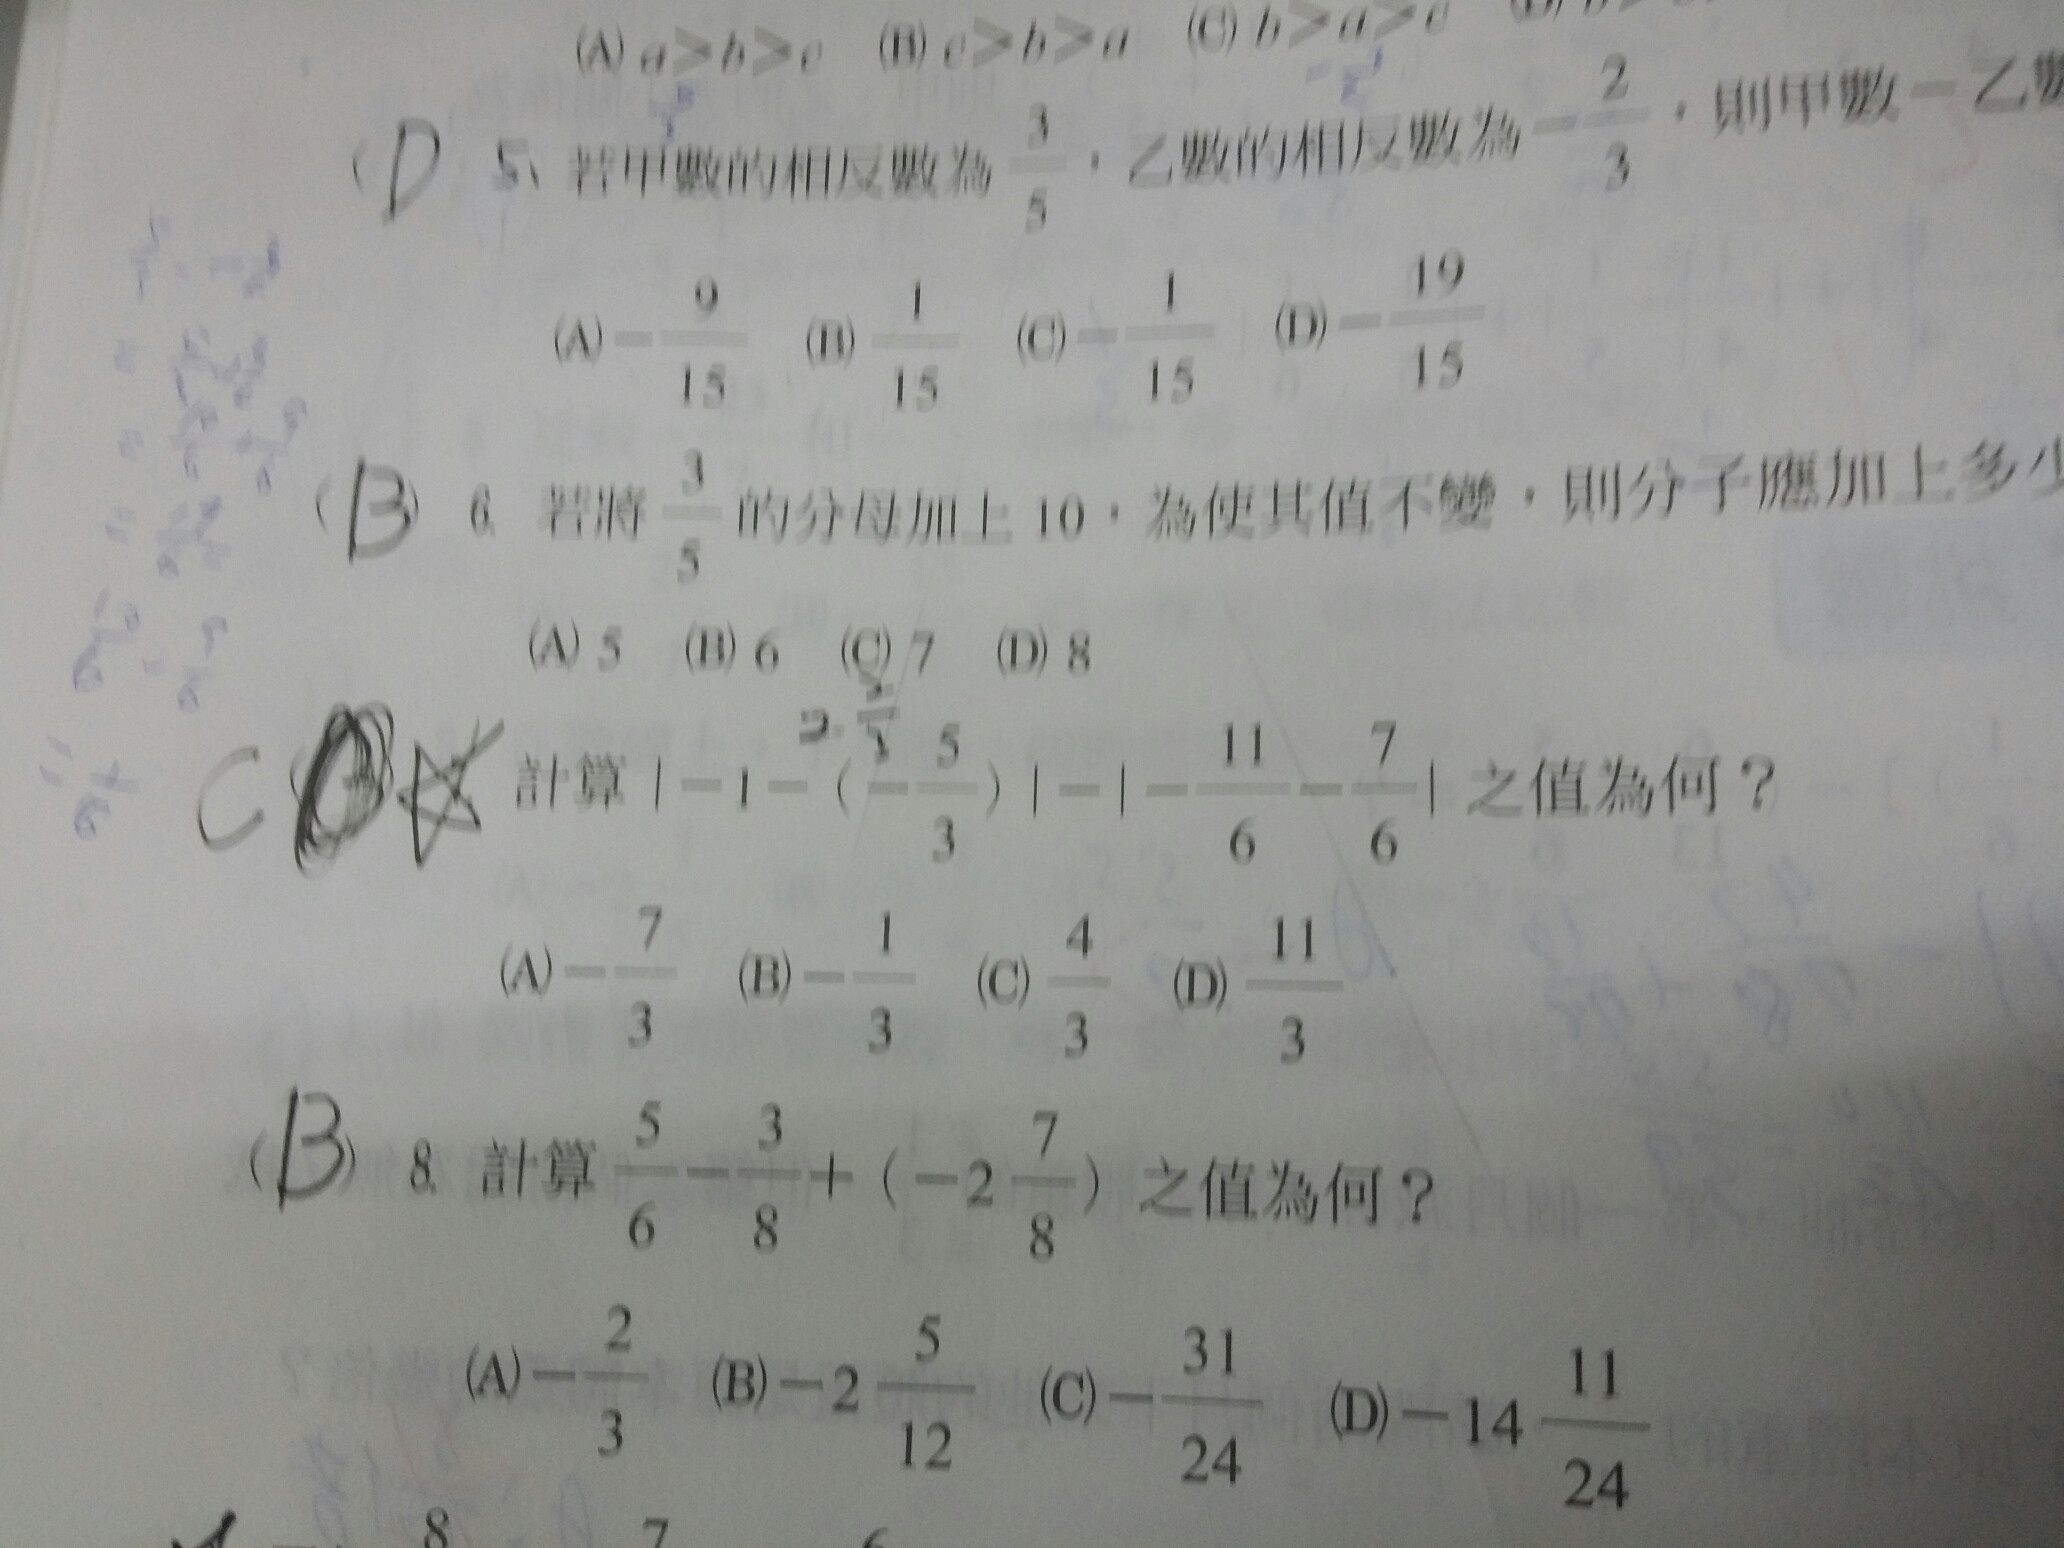 (A) a>b>c (B) c>b>a (C) b>a>c
(D) 5. 若甲數的相反數為 3/5，乙數的相反數為 -2/3，則甲數－乙數
(A) -9/15 (B) 1/15 (C) -1/15 (D) -19/15
(B) 6. 若將 3/5 的分母加上 10，為使其值不變，則分子應加上多少
(A) 5 (B) 6 (C) 7 (D) 8
C ( ) ☆ 計算 |-1-(-5/3)|-|-11/6-7/6| 之值為何？
(A) -7/3 (B) -1/3 (C) 4/3 (D) 11/3
(B) 8. 計算 5/6-3/8+(-2 7/8) 之值為何？
(A) -2/3 (B) -2 5/12 (C) -31/24 (D) -14 11/24
8 7 6